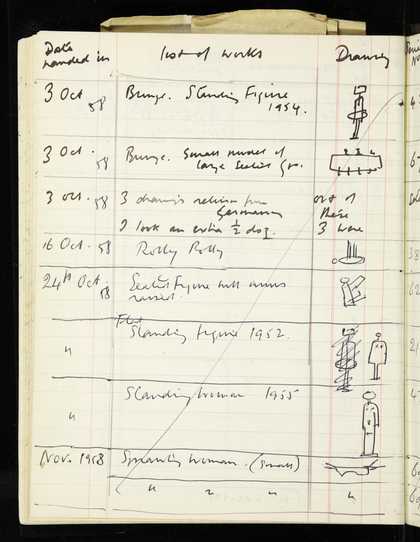 Date list of works Drawing
handed in
3 Oct 58 Bronze. Standing Figure
1954.
3 Oct. 58 Bronze. Small model of
large Seated
3 Oct. 58 3 drawings return from out of
Germany these
I took an extra ½ doz. 3 were
16 Oct. 58 Rolly Polly
24th Oct. 58 Seated Figure with arms
raised.
Flat
" Standing figure 1952.
" Standing woman 1955
Nov. 1958 Sprawling woman. (small)
" " " "